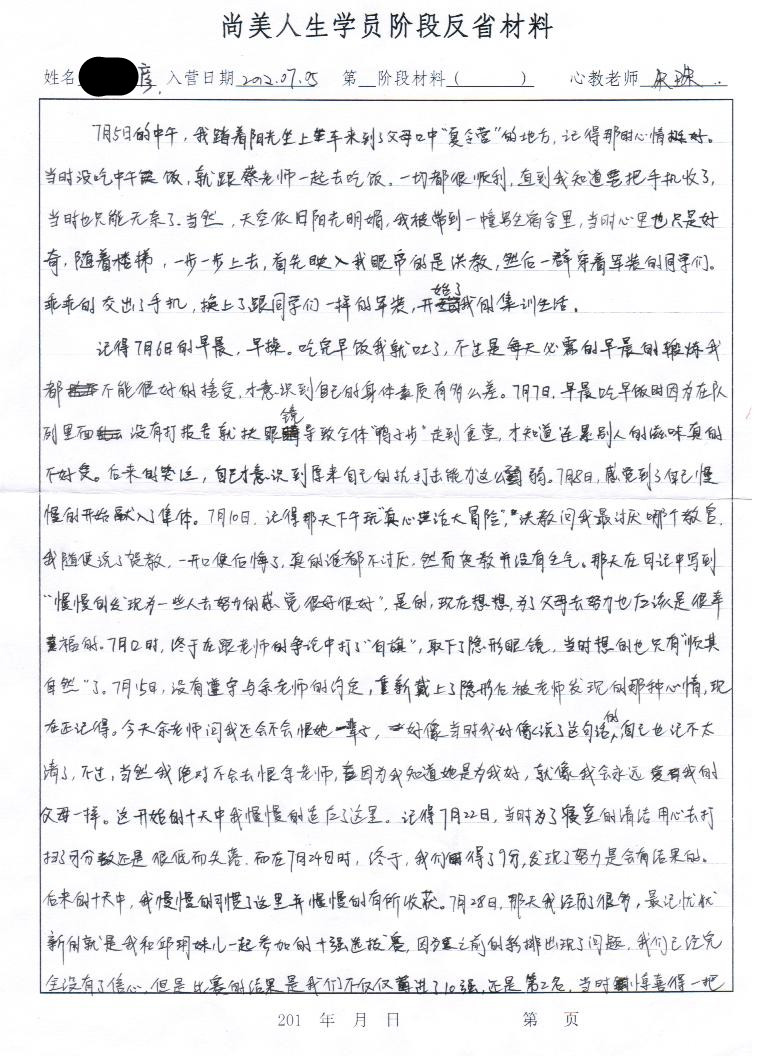 尚美人生学员阶段反省材料
姓名 彦, 入营日期 2012.07.05 第 阶段材料( ) 心教老师
7月5日的中午，我踏着阳光坐上车来到了父母口中"夏令营"的地方，记得那时心情挺好。
当时没吃中午饭，就跟蔡老师一起去吃饭。一切都很顺利，直到我知道要把手机收了，
当时也只能无奈了。当然，天空依旧阳光明媚，我被带到一幢男生宿舍里，当时心里也只是好
奇，随着楼梯，一步一步上去，首先映入我眼帘的是洪教，然后一群穿着军装的同学们。
乖乖的交出了手机，换上了跟同学们一样的军装，开始了我的集训生活。
记得7月6日的早晨，早操。吃完早饭我就吐了，不过是每天必需的早晨的锻炼我
都不能很好的接受，才意识到自己的身体素质有多么差。7月7日，早晨吃早饭时因为在队
列里面没有打报告就扶眼镜导致全体"鸭子步"走到食堂，才知道连累别人的滋味真的
不好受。后来的哭泣，自己才意识到原来自己的抗打击能力这么弱。7月8日，感觉到了自己慢
慢的开始融入了集体。7月10日，记得那天下午玩"真心话大冒险"，洪教问我最讨厌哪个教官，
我随便说了贺教，一开口便后悔了，真的谁都不讨厌，然而贺教并没有生气。那天在日记中写到
"慢慢的发现为一些人去努力的感觉很好很好"，是的，现在想想，为了父母去努力也应该是很幸
福的。7月12时，终于在跟老师的争论中打了"白旗"，取下了隐形眼镜，当时想的也只有"顺其
自然"了。7月15日，没有遵守与余老师的约定，重新戴上了隐形后被老师发现的那种心情，现
在还记得。今天余老师问我还会不会恨她一辈子，好像当时我好像说了这句话的，自己也记不太
清了，不过，当然我绝对不会去恨余老师，因为我知道她是为我好，就像我会永远爱我的
父母一样。这开始的十天中我慢慢的适应了这里。记得7月22日，当时为了寝室的清洁用心去打
扫了可分数还是很低而失落。而在7月24日时，终于，我们得了9分，发现了努力是会有结果的。
后来的十天中，我慢慢的习惯了这里并慢慢的有所收获。7月28日，那天我经历了很多，最记忆犹
新的就是我和邱玥妹儿一起参加的十强选拔赛，因为之前的彩排出现了问题，我们已经完
全没有了信心，但是比赛的结果是我们不仅仅进了10强，还是第2名，当时惊喜得一把
201 年 月 日 第 页